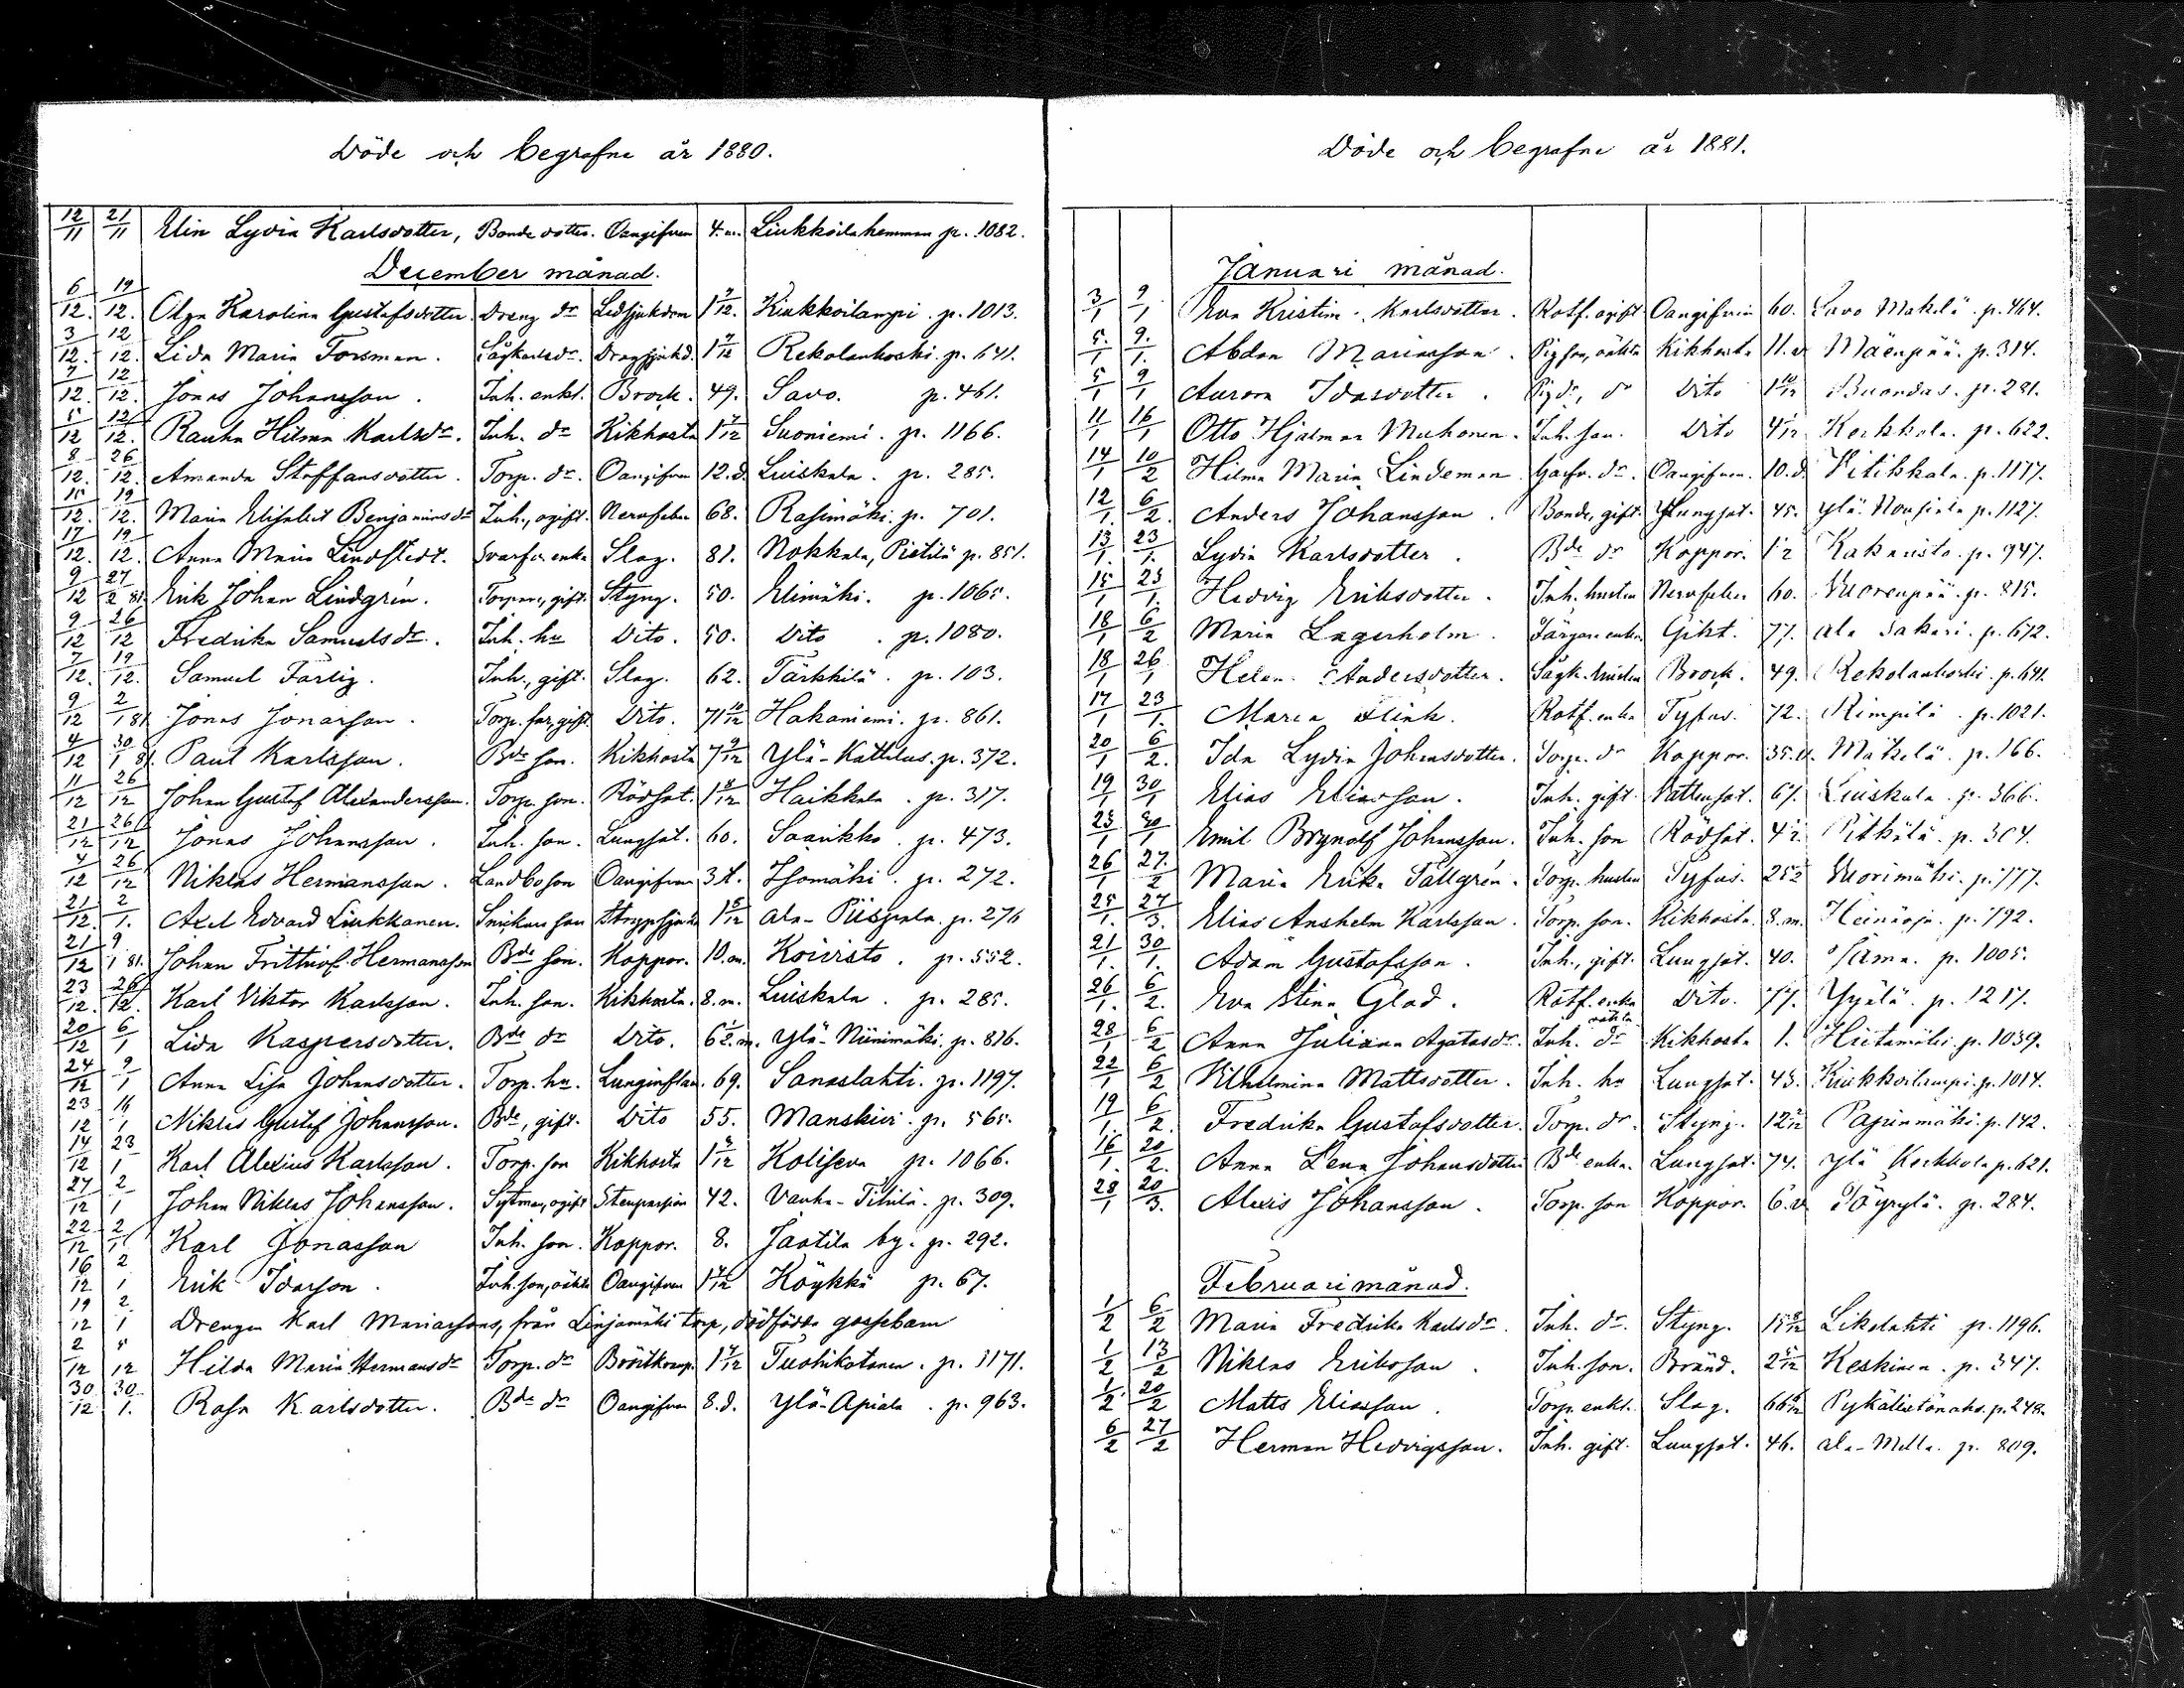 Döde och begrafne år 1880.
12/11 21/11 Elin Lydia Karlsdotter, Bonde dotter. Oangifven 4.m. Liukkoila hemman p. 1082.
December månad.
6/12. 19/12. Olga Karolina Gustafsdotter. Dreng dr Ledsjukdom 1 9/12. Kiukkoilampi. p. 1013.
3/12. 12/12. Lida Maria Forsman. Sågkarlsdr. Dragsjukd. 1 9/12 Rekolankoski. p. 641.
7/12. 12/12. Jonas Johansson. Inh. enkl. Brock. 49. Savo. p. 461.
5/12 12/12. Rauha Hilma Karlsdr. Inh. dr Kikhosta 1 7/12 Suoniemi. p. 1166.
8/12. 26/12. Amanda Staffansdotter. Torp. dr. Oangifven 12.d. Luiskala. p. 285.
15/12. 19/12. Maria Elisabet Benjaminsdr Inh., ogift. Nervfeber 68. Rasimäki. p. 701.
17/12. 19/12. Anna Maria Lindstedt. Svarfv. enka Slag. 81. Nokkala, Pietilä p. 851.
9/12 27/2 81. Erik Johan Lindgrén. Torpare, gift. Styng. 50. Elimäki. p. 1065.
9/12 26/12 Fredrika Samuelsdr. Inh. hu Dito. 50. Dito. p. 1080.
7/12. 19/12. Samuel Färlig. Inh., gift. Slag. 62. Tärkkilä. p. 103.
9/12 2/1 81 Jonas Jonasson. Torp. far, gift. Dito. 71 10/12 Hakaniemi. p. 861.
4/12 30/1 81. Paul Karlsson. Bde son. Kikhosta 7 9/12 Ylä-Kattelus. p. 372.
11/12 26/12 Johan Gustaf Alexandersson. Torp. son. Rödsot. 1 4/12 Haikkala. p. 317.
21/12 26/12 Jonas Johansson. Inh. son. Lungsot. 60. Saarikko. p. 473.
4/12 26/12 Niklas Hermansson. Landbo son Oangifven 3.t. Isomäki. p. 272.
21/12. 2/1. Axel Edvard Liukkanen. Snickare son Strypsjuka 1 5/12 Ala-Piispala. p. 276
21/12 9/1 81. Johan Frithiof Hermansson Bde son. Koppor. 10.m. Koivisto. p. 552.
23/12. 26/12. Karl Viktor Karlsson. Inh. son. Kikhosta. 8.m. Luiskala. p. 285.
20/12 6/1 Lida Kaspersdotter. Bde dr Dito. 6 1/2.m. Ylä-Niinimäki. p. 836.
24/12 9/1 Anna Lisa Johansdotter. Torp. hu. Lunginflam. 69. Sanaslahti. p. 1197.
23/12 16/1 Niklas Gustaf Johansson. Bde, gift. Dito 55. Manskivi. p. 565.
14/12 23/1 Karl Alexius Karlsson. Torp. son Kikhosta 1 3/12 Koliseva p. 1066.
27/12 2/1 Johan Niklas Johansson. Sytman, ogift Stenpassion 42. Vanha-Tihilä. p. 309.
22/12 2/1 Karl Jonasson Inh. son. Koppor. 8. Jaatila by. p. 292.
16/12 2/1 Erik Idasson. Inh. son, oäkta Oangifven 1 7/12 Köykkä p. 67.
19/12 2/1 Drengen Karl Mariassons, från Linjamäki torp, dödfödda gossebarn
2/12 5/12 Hilda Maria Hermansdr Torp. dr Bröstkramp. 1 7/12 Tuohikotanen. p. 1171.
30/12 30/1. Rosa Karlsdotter. Bde dr Oangifven 8.d. Ylä-Apiala. p. 963.
Döde och begrafne år 1881.
Januari månad.
3/1 9/1 Eva Kristina Karlsdotter. Rotf. ogift Oangifven 60. Savo Makelä. p. 464.
5/1 9/1. Abdon Mariasson. Pig son, oäkta Kikhosta 11.v. Mäenpää. p. 314.
5/1 9/1 Aurora Idasdotter. Pig dr, dr Dito 1 10/12 Buondas. p. 281.
11/1 16/1 Otto Hjalmar Muhonen. Inh. son. Dito 4 1/12 Kerkkola. p. 622.
14/1 10/2 Hilma Maria Lindeman Garfv. dr. Oangifven. 10.d. Pitikkala. p. 1177.
12/1. 6/2. Anders Johansson. Bonde, gift. Lungsot. 45. Ylä-Nousiala p. 1127.
13/1. 23/1. Lydia Karlsdotter. Bde dr Koppor. 1/2 Kakaristo. p. 947.
15/1 23/1. Hedvig Eriksdotter. Inh. hustru Nervfeber 60. Vuorenpää. p. 815.
18/1 6/2 Maria Lagerholm. Färgare enka Gikt. 77. Ala Sakari. p. 672.
18/1 26/1 Helena Andersdotter. Sågk. hustru Brock. 49. Rekolankoski. p. 641.
17/1 23/1. Maria Flink. Rotf. enka Tyfus. 72. Rimpilä. p. 1021.
20/1 6/2. Ida Lydia Johansdotter. Torp. dr Koppor. 35.v. Mäkelä. p. 166.
19/1 30/1 Elias Eliasson. Inh. gift. Vattensot. 67. Luiskala. p. 366.
23/1 30/1 Emil Brynolf Johansson. Inh. son Rödsot. 4 1/2 Pitkälä. p. 304.
26/1 27./2 Maria Erika Tällgrén. Torp. hustru Tyfus. 25 1/2 Vuorimäki. p. 777.
25/1. 27/3. Elias Anshelm Karlsson. Torp. son. Kikhosta. 8.m. Heinäoja. p. 792.
21/1. 30/1. Adam Gustafsson. Inh., gift. Lungsot. 40. Sama. p. 1005.
26/1. 6/2. Eva Stina Glad. Rotf. enka Dito. 77. Yyälä. p. 1217.
28/1 6/2 Anna Juliana Agatasdr. Inh. oäkta dr Kikhosta 1. Hiitamäki. p. 1039.
22/1 6/2 Vilhelmina Mattsdotter. Inh. hu Lungsot. 43. Kiukkoilampi. p. 1014.
19/1. 6/2. Fredrika Gustafsdotter. Torp. dr. Styng. 12 2/12 Papinmäki. p. 142.
16/1. 20/2. Anna Lena Johansdotter Bde enka. Lungsot. 74. Ylä Kerkkola p. 621.
28/1 20/3. Alexis Johansson. Torp. son Koppor. 6.v Töyrylä. p. 284.
Februari månad.
1/2 6/2 Maria Fredrika Karlsdr. Inh. dr. Styng. 15 9/12 Likolahti p. 1196.
1/2 13/2 Niklas Eriksson. Inh. son. Bränd. 2 5/12 Keskinen. p. 347.
1/2. 20/2 Matts Eliasson. Torp. enkl. Slag. 66 6/12 Pykälistönaho. p. 248.
6/2 27/2 Herman Hedvigsson. Inh. gift. Lungsot. 46. Ala-Mella. p. 809.